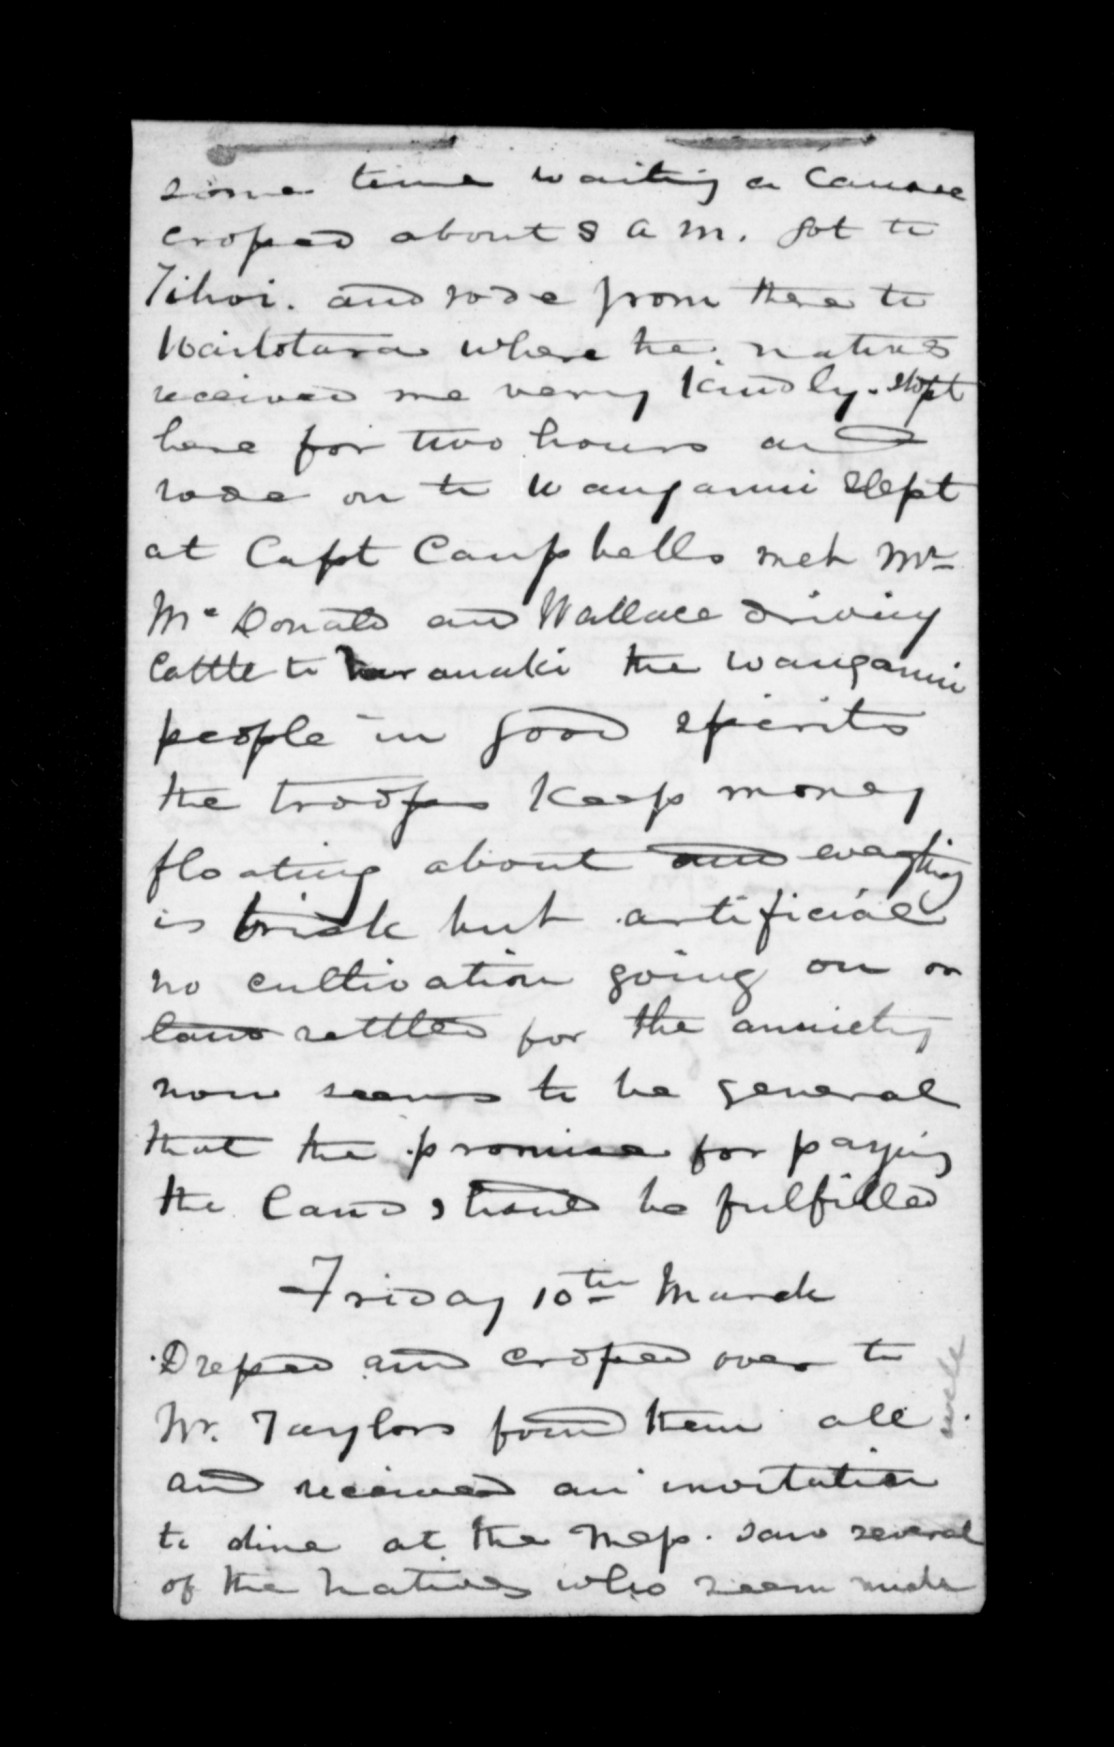 some time waiting a Canoe
crossed about 8 a m. got to
Tihoi. and rode from there to
Waitotara where he natives
received me very kindly. stopt
here for two hours and
rode on to Wanganui slept
at Capt Campbells met Mr
Mc Donald and Wallace driving
Cattle to Taranaki the Wanganui
people in good spirits
the troops keep money
floating about and everything
is brisk but artificial
no cultivation going on or
land settled for the anxiety
now seems to be general
that the promise for paying
the land should be fulfilled
Friday 10th March
Dressed and crossed over to
Mr. Taylors found them all well
and received an invitation
to dine at the Mess. saw several
of the Natives who seem much